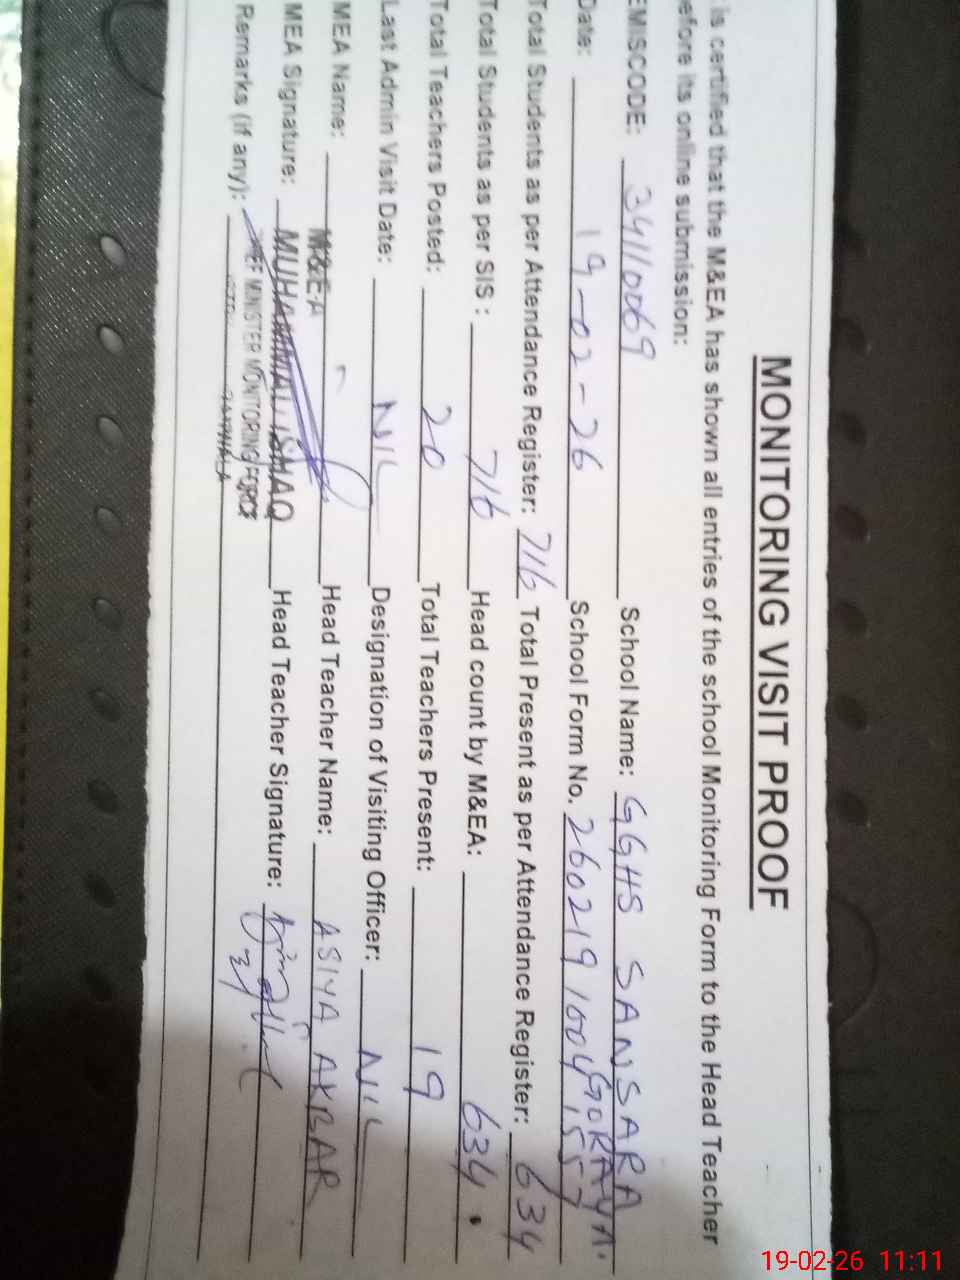 MONITORING VISIT PROOF
is certified that the M&EA has shown all entries of the school Monitoring Form to the Head Teacher
efore its online submission:
EMISCODE: 34110069 School Name: GGHS SANSARA GORAYA.
Date: 19-02-26 School Form No. 2602191004157
Total Students as per Attendance Register: 716 Total Present as per Attendance Register: 634
Total Students as per SIS: 716 Head count by M&EA: 634.
Total Teachers Posted: 20 Total Teachers Present: 19
Last Admin Visit Date: NIL Designation of Visiting Officer: NIL
MEA Name: M&E-A Head Teacher Name: ASIYA AKBAR
MEA Signature: MUHAMMAD ISHAQ Head Teacher Signature:
Remarks (if any): CHIEF MINISTER MONITORING FORCE
19-02-26 11:11